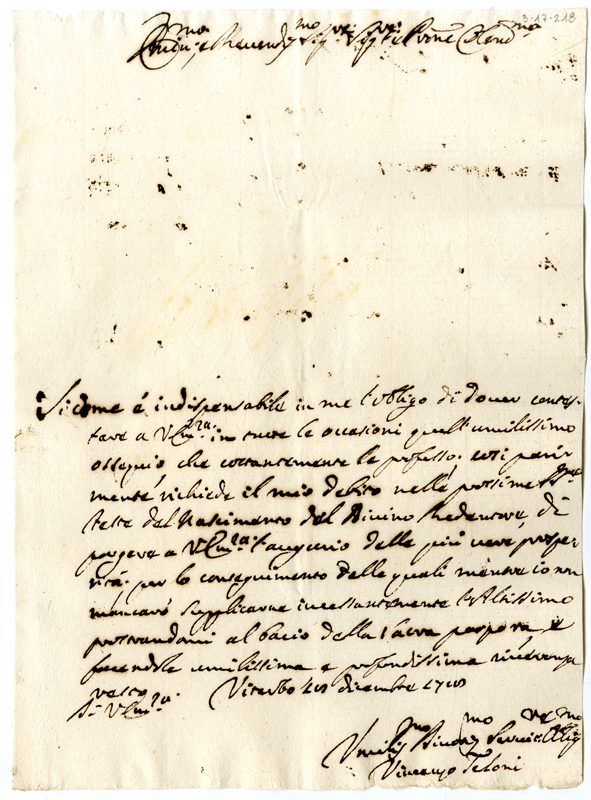 3-17-218
Em.mo e Reverend.mo Sig.re Sig.re e P.rone Colend.mo
Si come è indispensabile in me l'obligo di dover contes-
tare a V. Em.za in tutte le occasioni quell'umilissimo
ossequio che costantemente le professo; così pari-
mente richiede il mio debito nelle prossime
feste del Nascimento del Divino Redentore, di
porgere a V. Em.za l'augurio delle più vere prospe-
rità. per lo conseguimento delle quali mentre io non
mancarò supplicarne incessantemente l'Altissimo
prostrandomi al bacio della sacra porpora, e
facendole umilissima e profondissima riverenza
resto
Di V. Em.za. Viterbo dicembre
Umilis.mo Divot.mo Servit.re Oblig.mo
Vincenzo Teloni